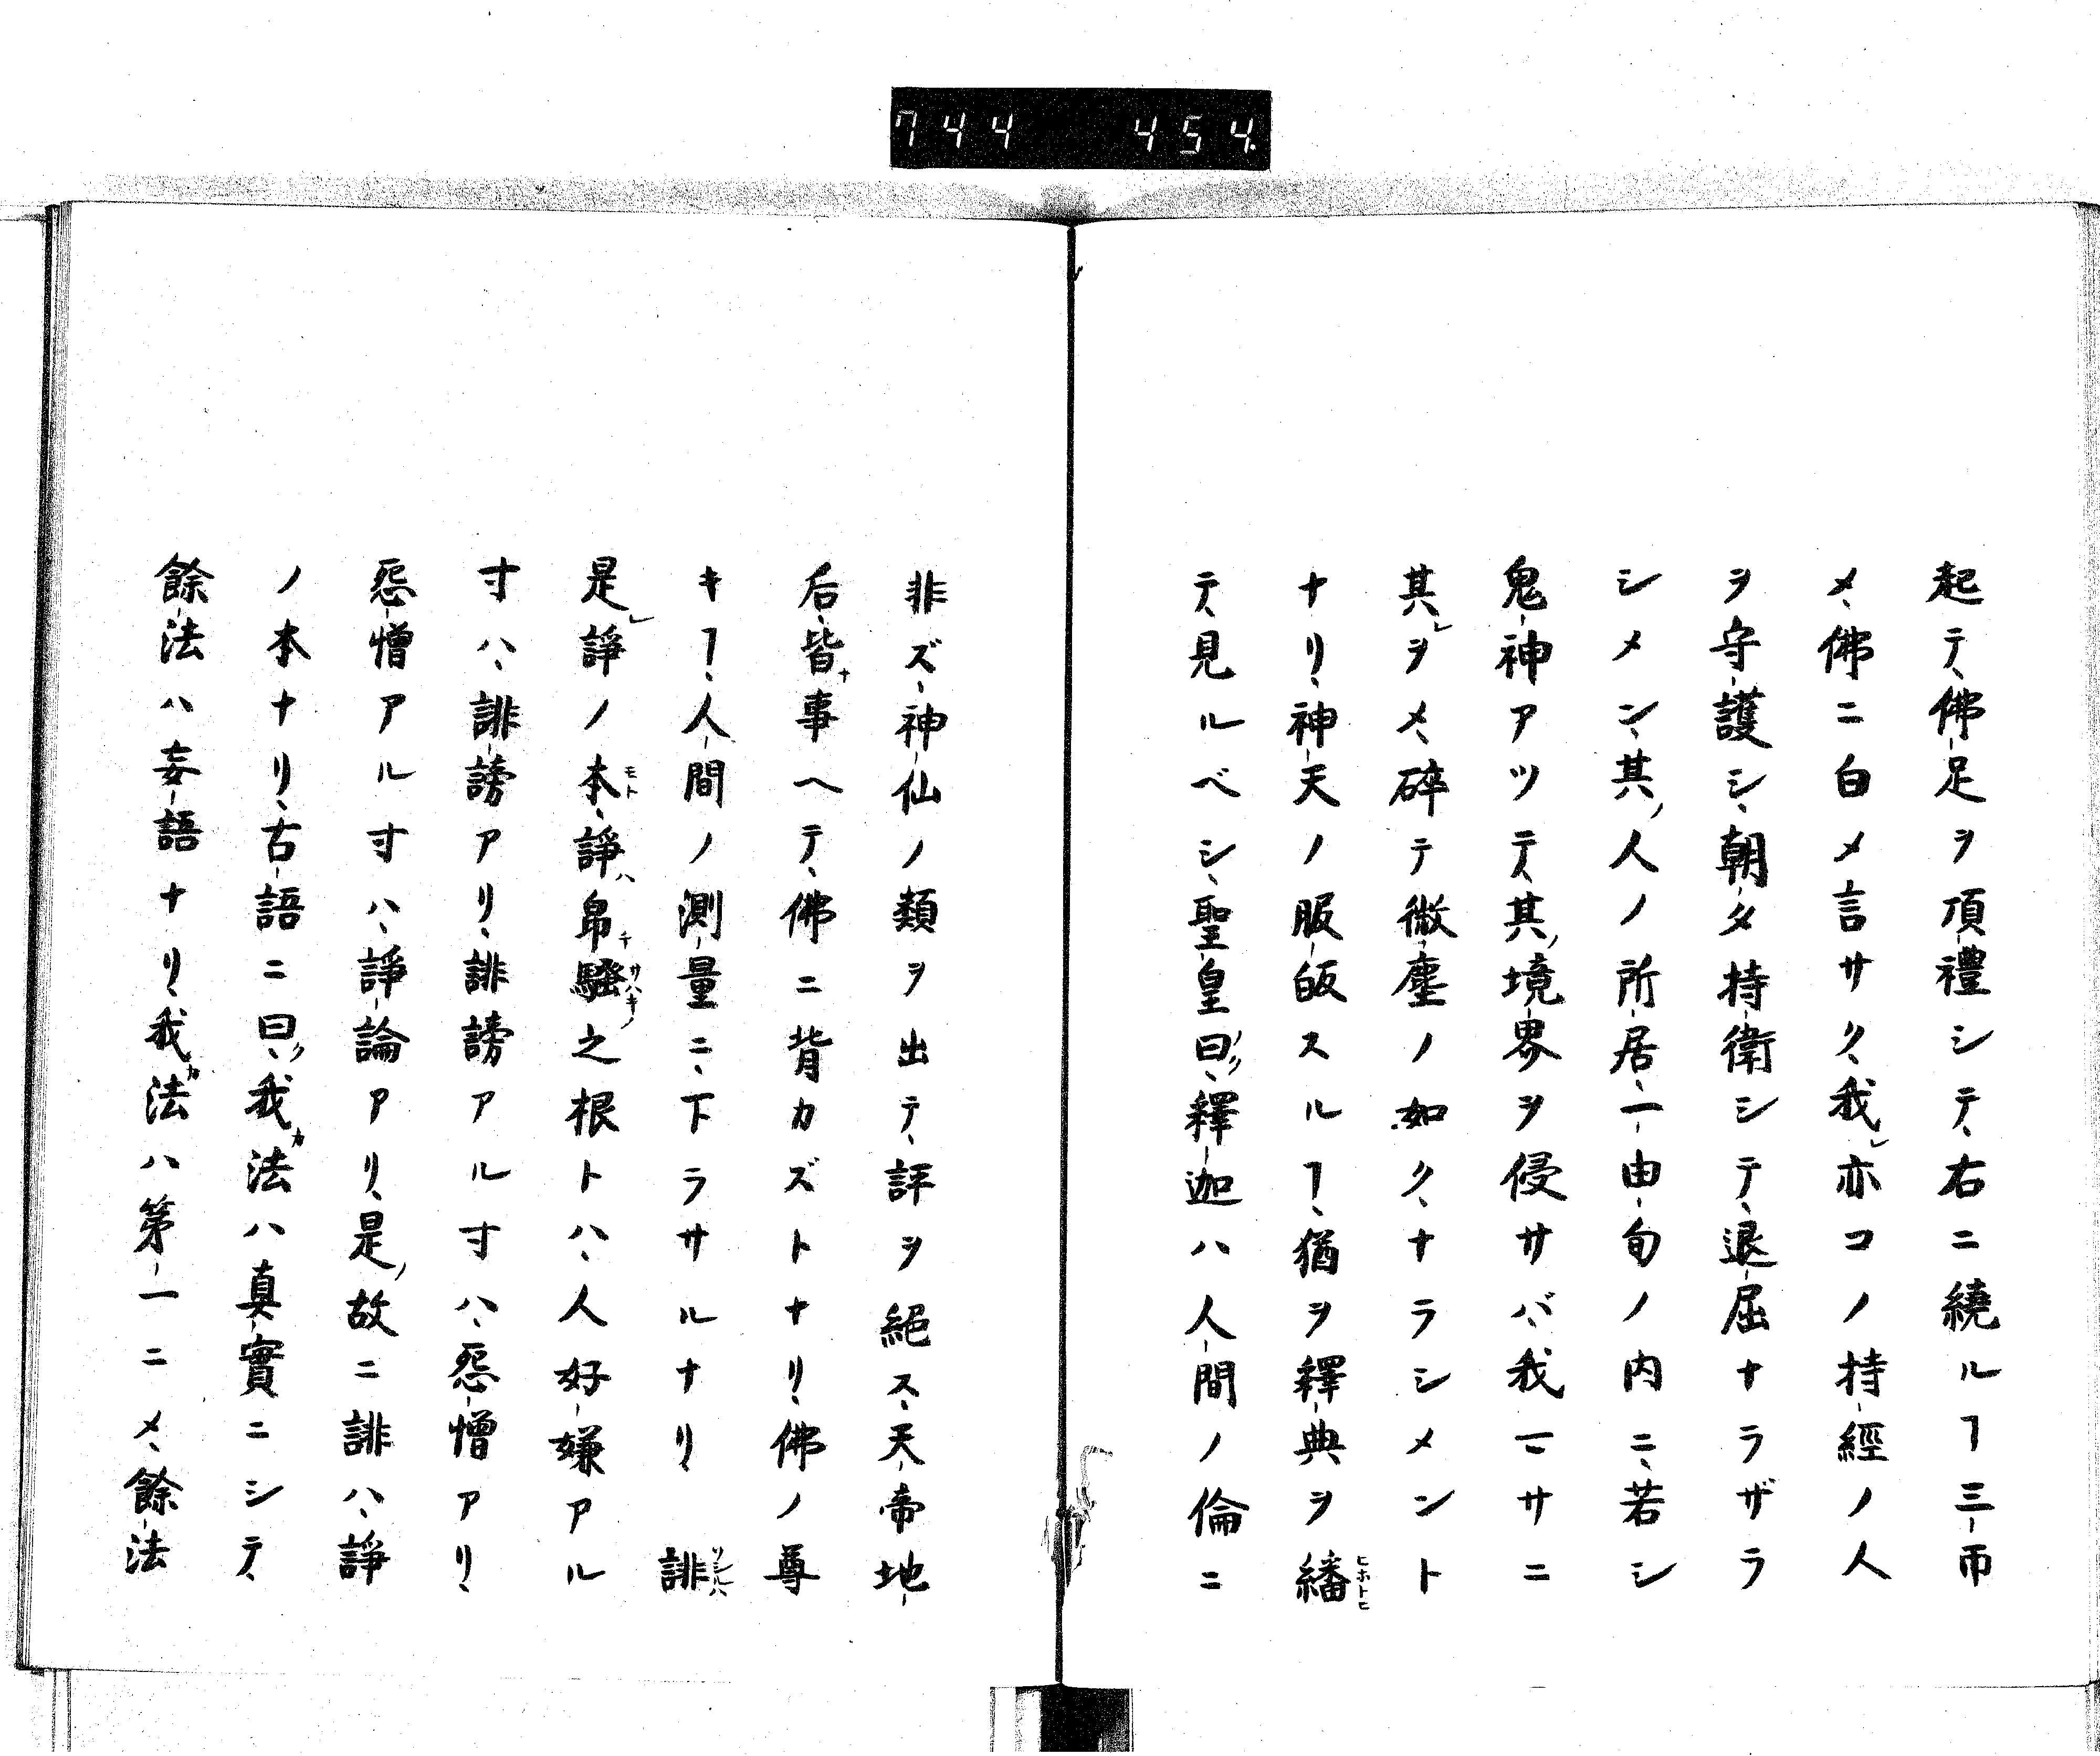 744 454.
起テ、佛足ヲ頂禮シテ、右ニ繞ルヿ三帀
メ、佛ニ白メ言サク、我レ亦コノ持經ノ人
ヲ守護シ、朝夕持衛シテ、退屈ナラザラ
シメン、其ノ人ノ所居、一由旬ノ内ニ、若シ
鬼神アツテ、其ノ境界ヲ侵サバ、我マサニ
其レヲメ、碎テ微塵ノ如ク、ナラシメント
ナリ、神天ノ服皈スルヿ、猶ヲ釋典ヲ繙ヒホトヒ
テ、見ルベシ、聖皇曰ノク、釋迦ハ人間ノ倫ニ
非ズ、神仙ノ類ヲ出テ、評ヲ絕ス、天帝地
后、皆ナ事ヘテ、佛ニ背カズトナリ、佛ノ尊
キヿ、人間ノ測量ニ、下ラサルナリ、 誹ソシルハ
是レ諍ノ本モト、諍ハ帛チ騷サハキノ之根トハ、人好嫌アル
寸ハ、誹謗アリ、誹謗アル寸ハ、惡憎アリ、
惡憎アル寸ハ、諍論アリ、是ノ故ニ誹ハ、諍
ノ本ナリ、古語ニ曰ク、我カ法ハ真實ニシテ、
餘法ハ妄語ナリ、我カ法ハ第一ニメ、餘法